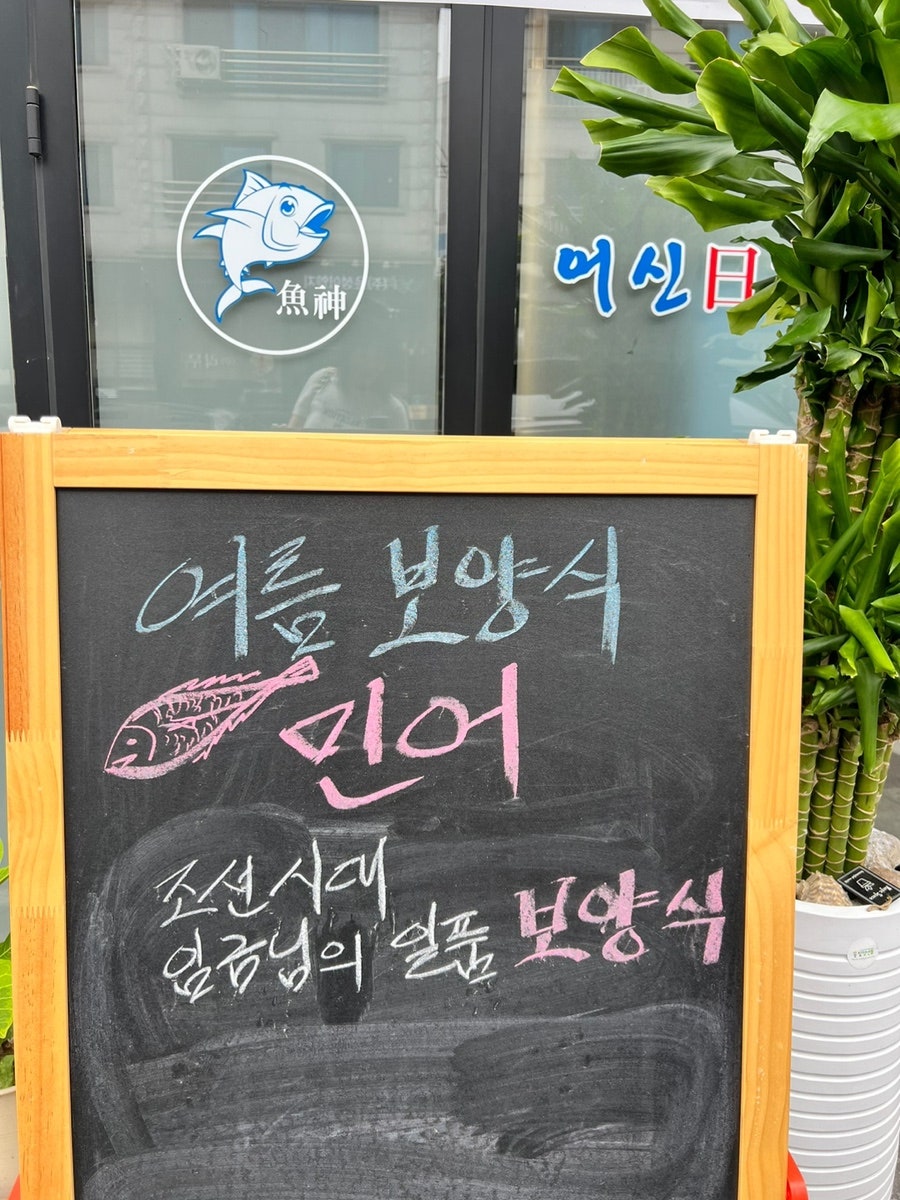 魚神
어신日
여름 보양식
민어
조선시대
임금님의 일품 보양식